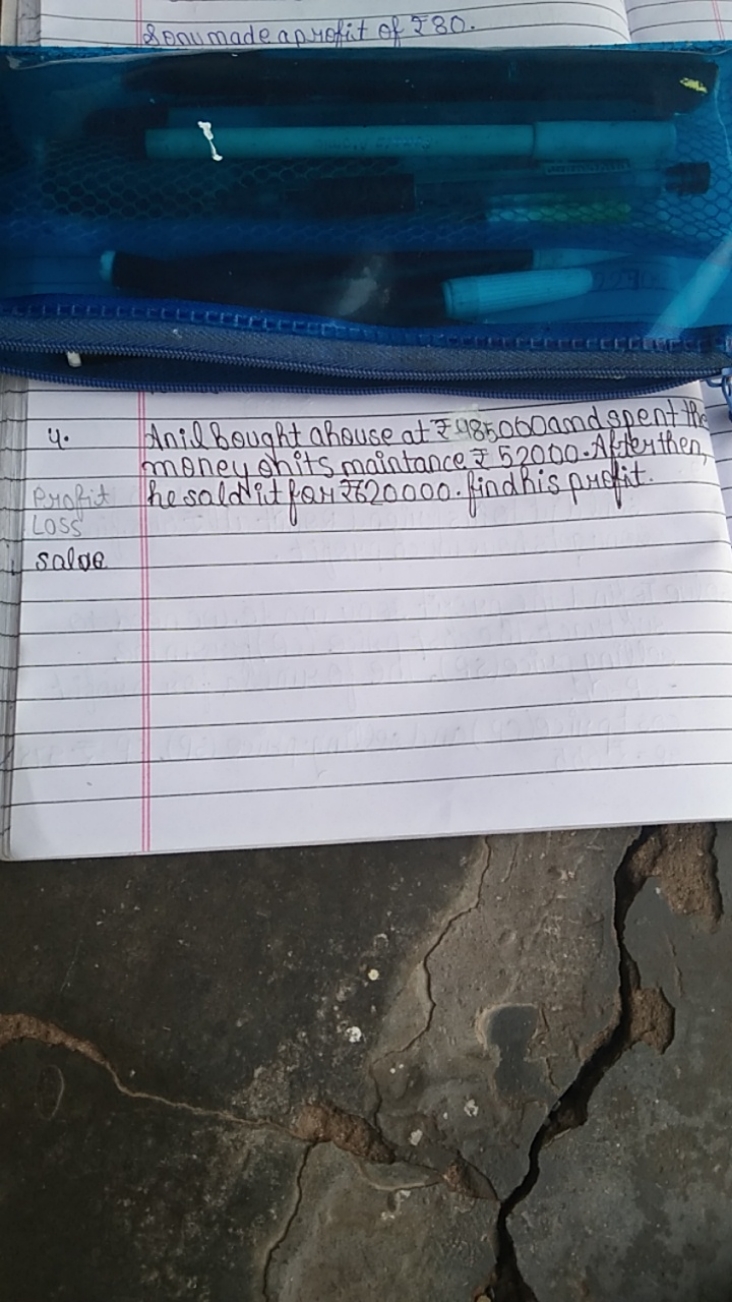 Sonu made a profit of ₹80.
4. Anil Bought a house at ₹485000 and spent the
money on its maintance ₹ 52000. After then,
Profit he sald it far ₹620000. find his profit.
Loss
salve